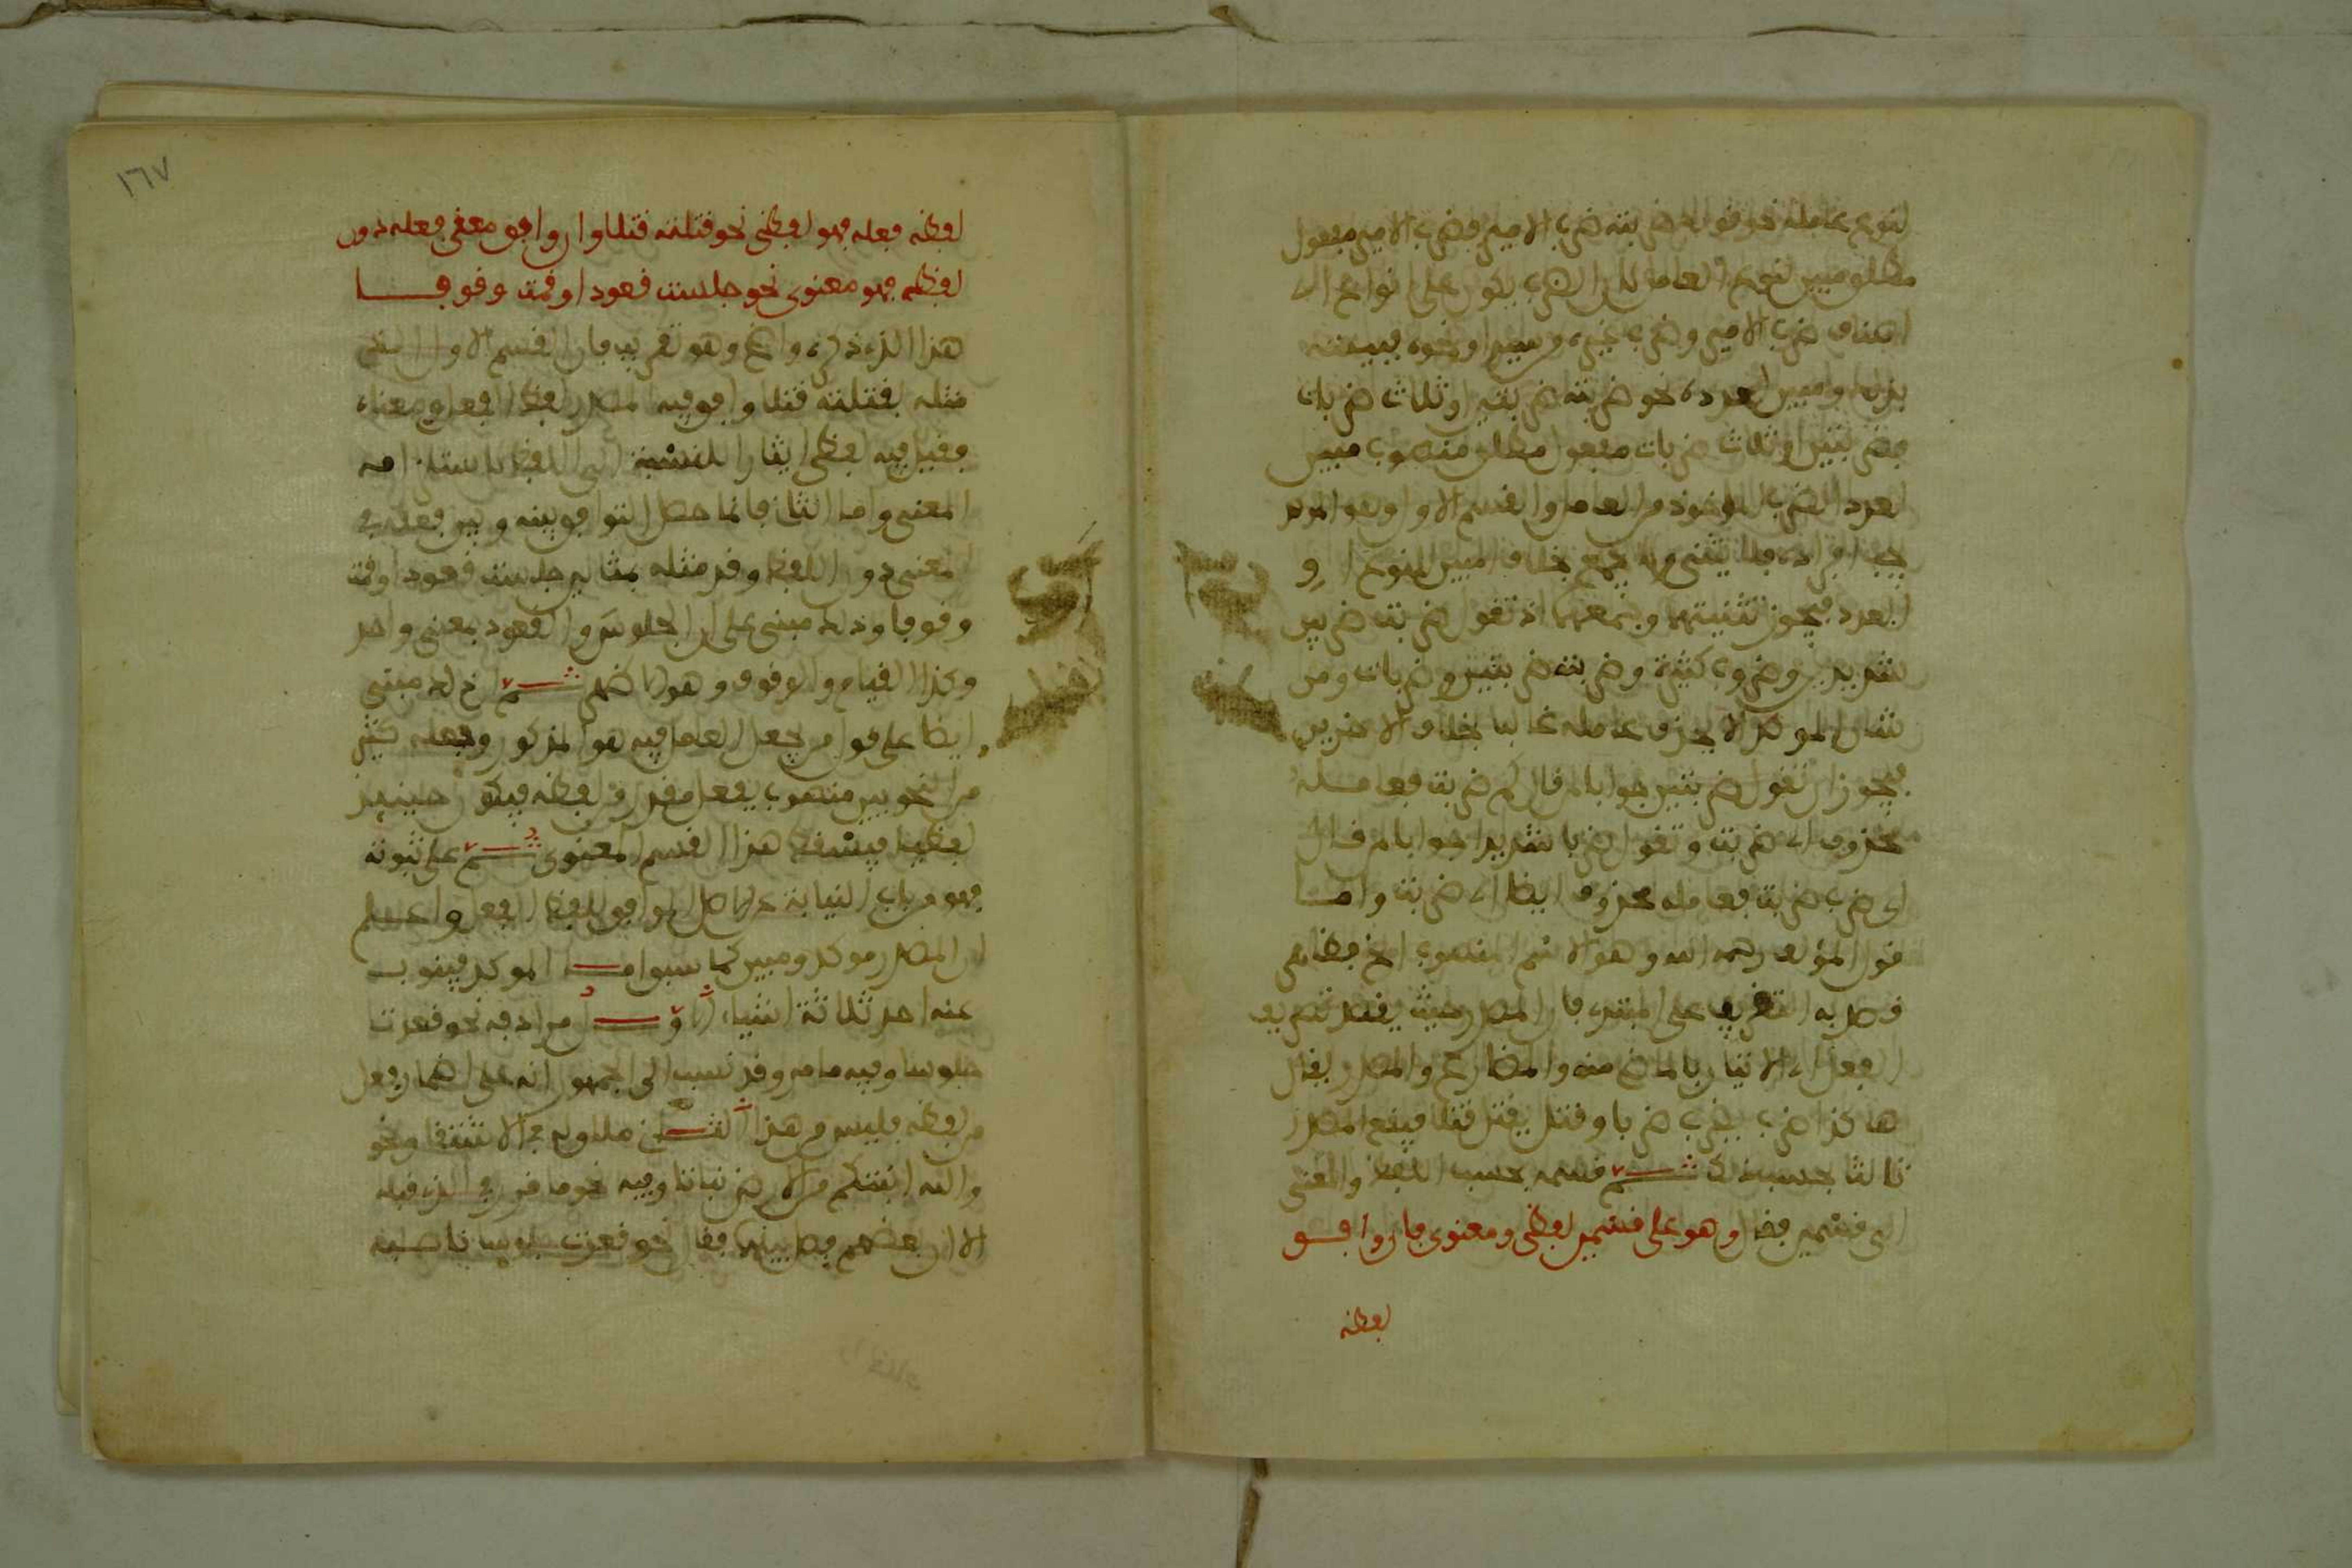 لنوع عامله نحو قولك ضربته ضرب الامير فضرب الامير مفعول
مطلق مبين لنوع العامل لان الضرب يكون على انواع اي
اصناف ضرب الامير وضرب غيره ويسير او نحوه فبينته
بذلك ومبين لعدده نحو ضربته ضربتين او ثلاث ضربات
فضربتين او ثلاث ضربات مفعول مطلق منصوب مبين
لعدد الضرب الماخوذ من العامل والقسم الاول وهو الموكد
يجب افراده فلا يثنى ولا يجمع بخلاف مبين النوع او
العدد فيجوز تثنيتهما وجمعهما اذ تقول ضربت ضربين
شديدين وضروب كثيرة وضربته ضربتين وضربات ومن
شان الموكد الا يحذف عامله غالبا بخلاف الاخرين
فيجوز ان تقول ضربتين جوابا لمن قال كم ضربت فعامله
محذوف اي ضربت وتقول ضربا شديدا جوابا لمن قال
اي ضرب ضربت فعامله محذوف ايضا اي ضربت واما
قول المؤلف رحمه الله وهو الاسم المنصوب الخ فضابط
قصد به التقريب على المبتدي فان المصدر حيث يقصد تصريف
الفعل اي الاتيان بالماضي منه والمضارع والمصدر يقال
هاكذا ضرب يضرب ضربا وقتل يقتل قتلا فيقع المصدر
ثالثا حسبما ذكر ثم قسمه بحسب اللفظ والمعنى
الى قسمين فقال وهو على قسمين لفظي ومعنوي فان وافق
لفظه
١٦٧
لفظه فعله فهو لفظي نحو قتلته قتلا وان وافق معنى فعله دون
لفظه فهو معنوي نحو جلست قعودا وقمت وقوفا
هذا الذي ذكره واضح وهو تقريب فان القسم الاول الذي
مثله بقتلته قتلا وافق فيه المصدر لفظ الفعل ومعناه
فقيل فيه لفظي ايثارا للنسبة الى اللفظ لاستلزامه
المعنى واما الثاني فانما حصل التوافق بينه وبين فعله في
المعنى دون اللفظ وقد مثله بمثالين جلست قعودا وقمت
وقوفا وذلك مبني على ان الجلوس والقعود بمعنى واحد
وكذا القيام والوقوف وهو ثم ان ذلك مبني
ايضا على قول من يجعل العامل فيه هو المذكور وجعله كثير
من النحويين منصوب بفعل مقدر من لفظه فيكون حينيذ
لفظيا فيسقط هذا القسم المعنوي ثم على ثبوته
فهو من باب النيابة عن الاصل الموافق للفظ الفعل واعلم
ان المصدر موكد ومبين كما سبق اما الموكد فينوب
عنه احد ثلاثة اشياء الاول مرادفه نحو قعدت
جلوسا وفيه ما مر وقد نسب الى الجمهور انه على اضمار فعل
من لفظه فليس من هذا الثاني ملاقيه في الاشتقاق نحو
والله انبتكم من الارض نباتا وفيه نحو ما مر في الذي قبله
الا ان بعضهم فصل بينهما فقال نحو قعدت جلوسا ناصبه